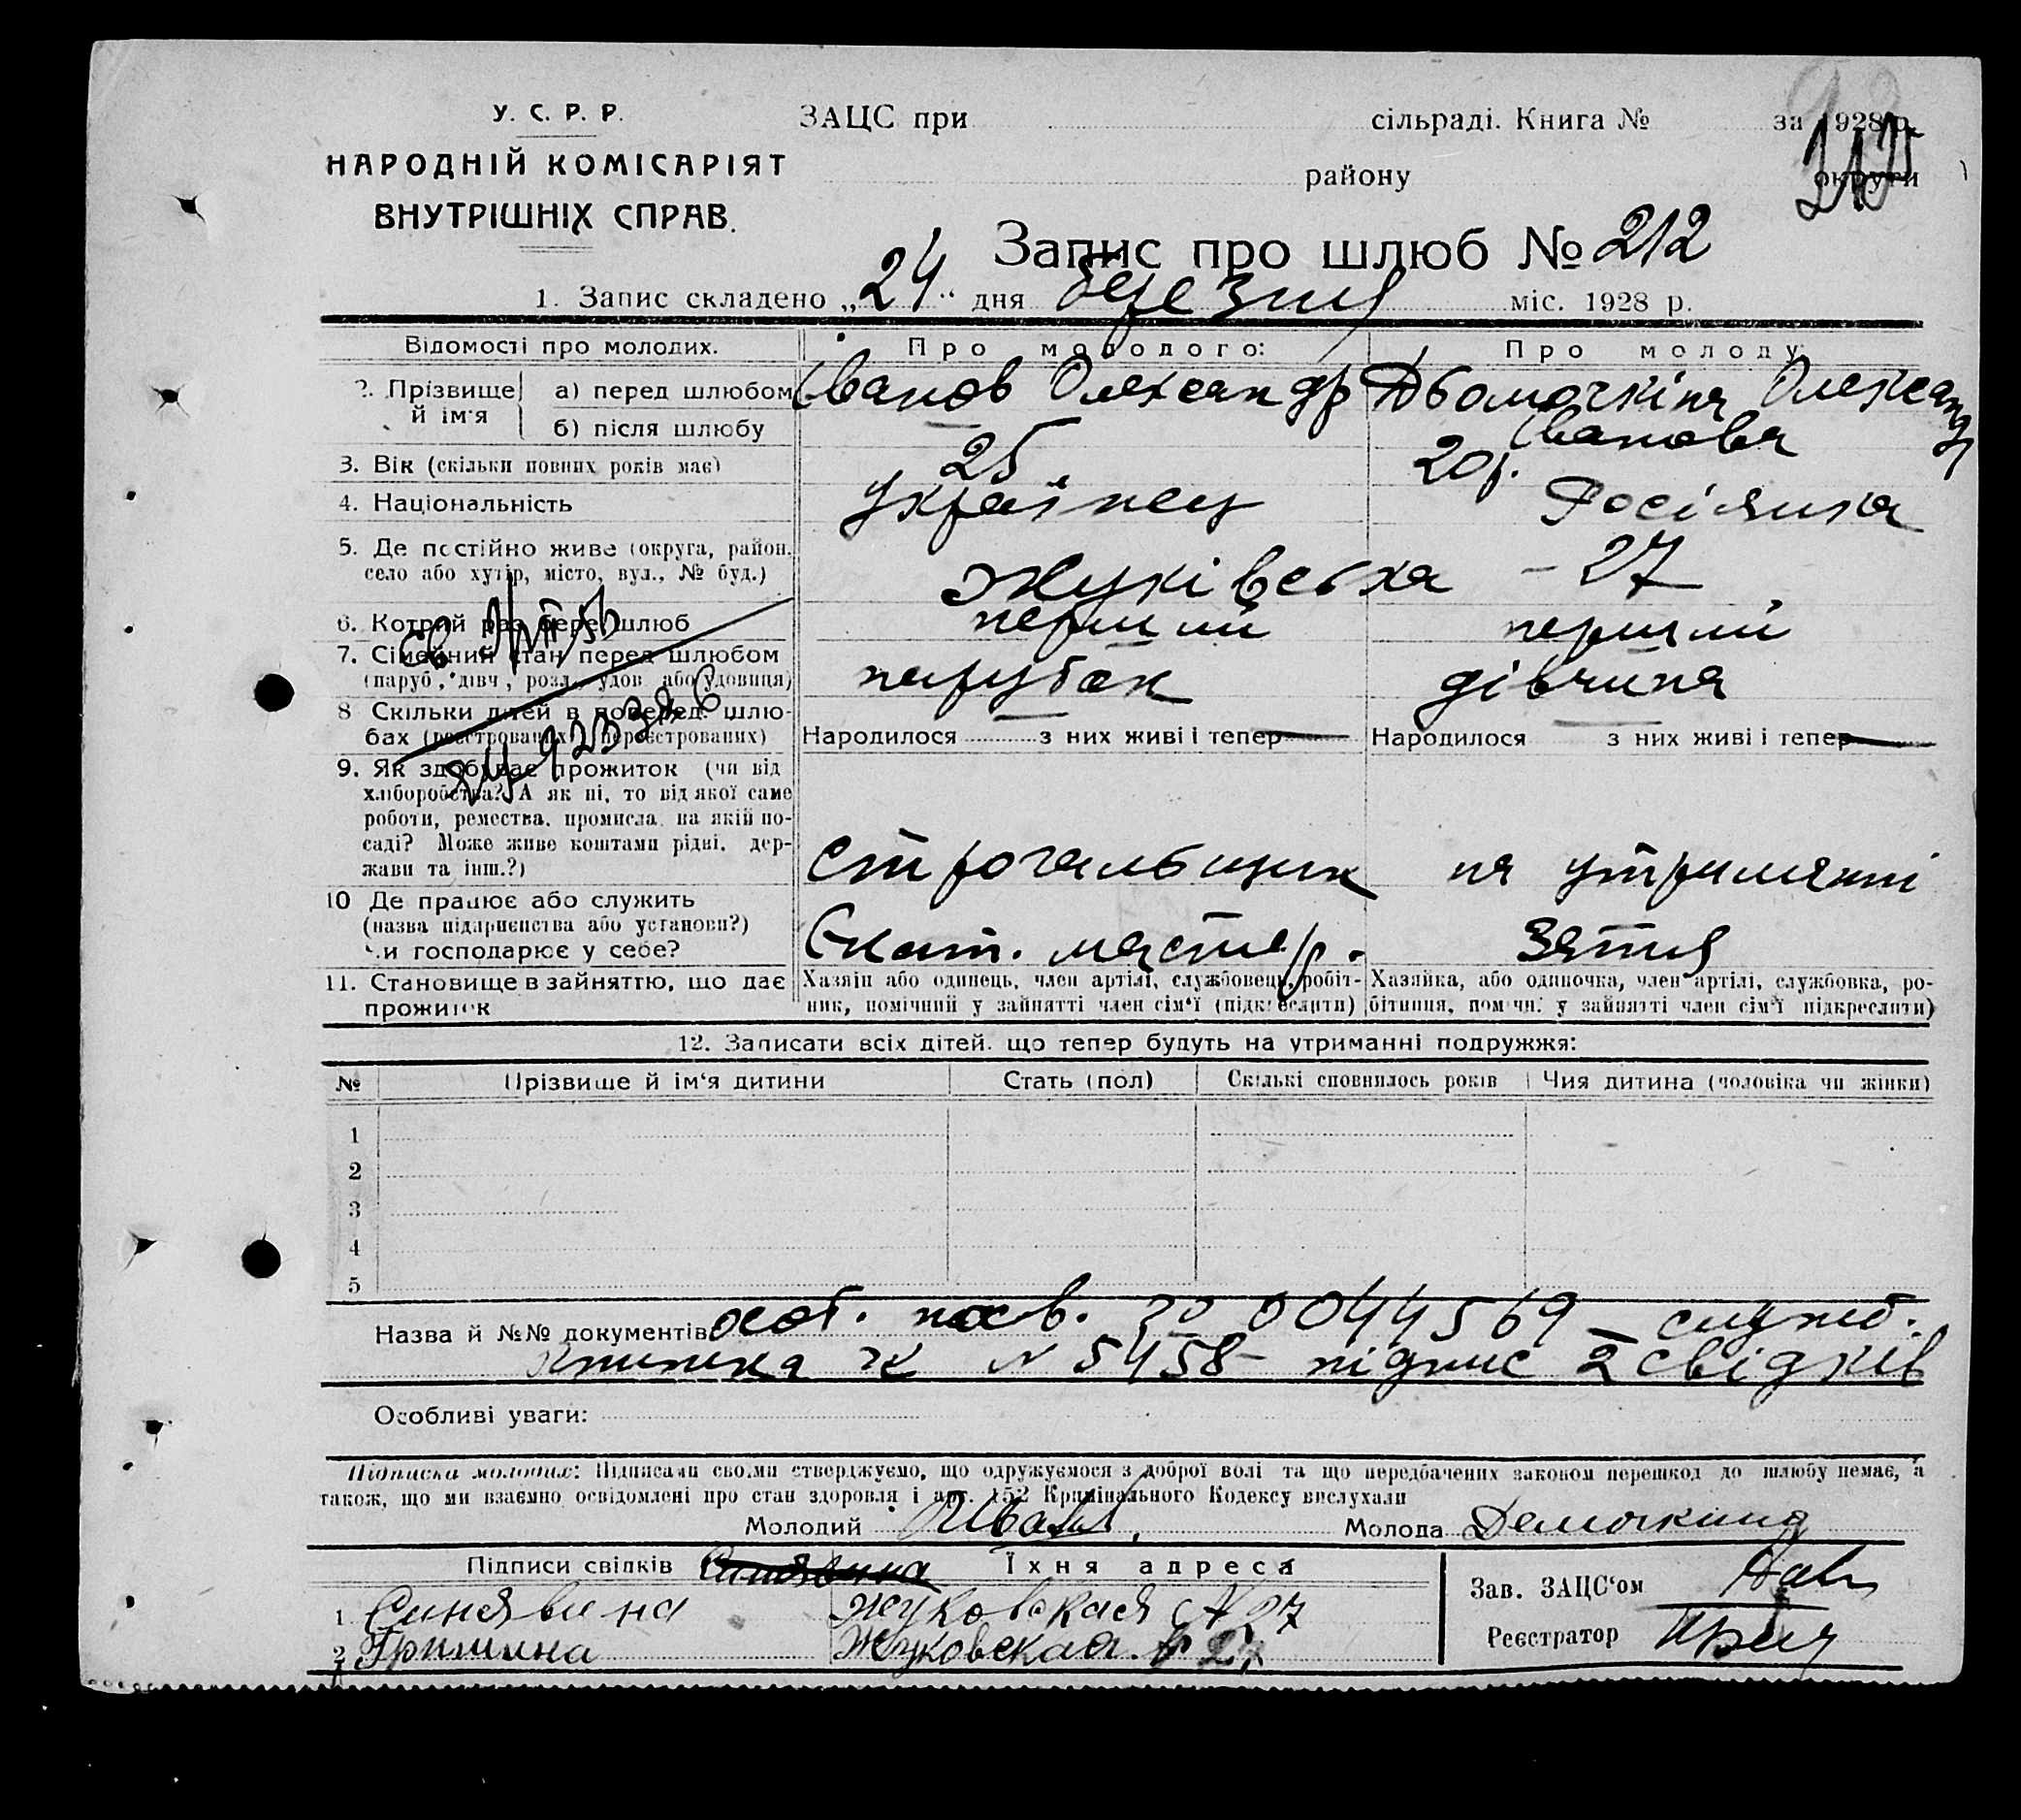 У. С. Р. Р.
НАРОДНІЙ КОМІСАРІЯТ
ВНУТРІШНІХ СПРАВ.
ЗАЦС при сільраді. Книга № за 1928 р.
району округи
Запис про шлюб № 212
1. Запис складено „24“ дня березня міс. 1928 р.
Відомості про молодих. Про молодого: Про молоду:
2. Прізвище й ім'я а) перед шлюбом Іванов Олександр Олександр
б) після шлюбу Іванова
3. Вік (скільки повних років має) 25 20 р.
4. Національність українец Росіянка
5. Де постійно живе (округа, район, село або хутір, місто, вул., № буд.) Жуківська - 27
6. Котрий раз бере шлюб перший перший
7. Сімейний стан перед шлюбом парубок дівчина
(паруб., дівч., розл., удов. або удовиця)
8 Скільки дітей в поперед. шлюбах (реєстрованих і нереєстрованих) Народилося з них живі і тепер Народилося з них живі і тепер
9. Як здобуває прожиток (чи від
хліборобства? А як ні, то від якої саме
роботи, ремества, промисла, на якій посаді? Може живе коштами рідні, держави та інш.?) строгальщик на утриманні
10 Де працює або служить
(назва підприєнства або установи?)
Чи господарює у себе? Екат. мастер. зятя
11. Становище в зайняттю, що дає прожиток
Хазяїн або одинець, член артілі, службовець, робітник, помічний у зайнятті член сім'ї (підкреслити)
Хазяйка, або одиночка, член артілі, службовка, робітниця, помічн. у зайнятті член сім'ї підкреслити)
12. Записати всіх дітей, що тепер будуть на утриманні подружжя:
№ Прізвище й ім'я дитини Стать (пол) Скількі сповнилось років Чия дитина (чоловіка чи жінки)
1
2
3
4
5
Назва й №№ документів особ. посв. 0044569 – служб.
книжка № 5458 – підпис 2 свідків
Особливі уваги:
Підписка молодих: Підписами своїми стверджуємо, що одружуємося з доброї волі та що передбачених законом перешкод до шлюбу немає, а
також, що ми взаємно освідомлені про стан здоровля і арт. 152 Кримінального Кодексу вислухали
Молодий Иванов Молода Демочкина
Підписи свідків Синявина Їхня адреса
1 Синявина Жуковская № 27
2 Гришина Жуковская № 27
Зав. ЗАЦС'ом
Реєстратор